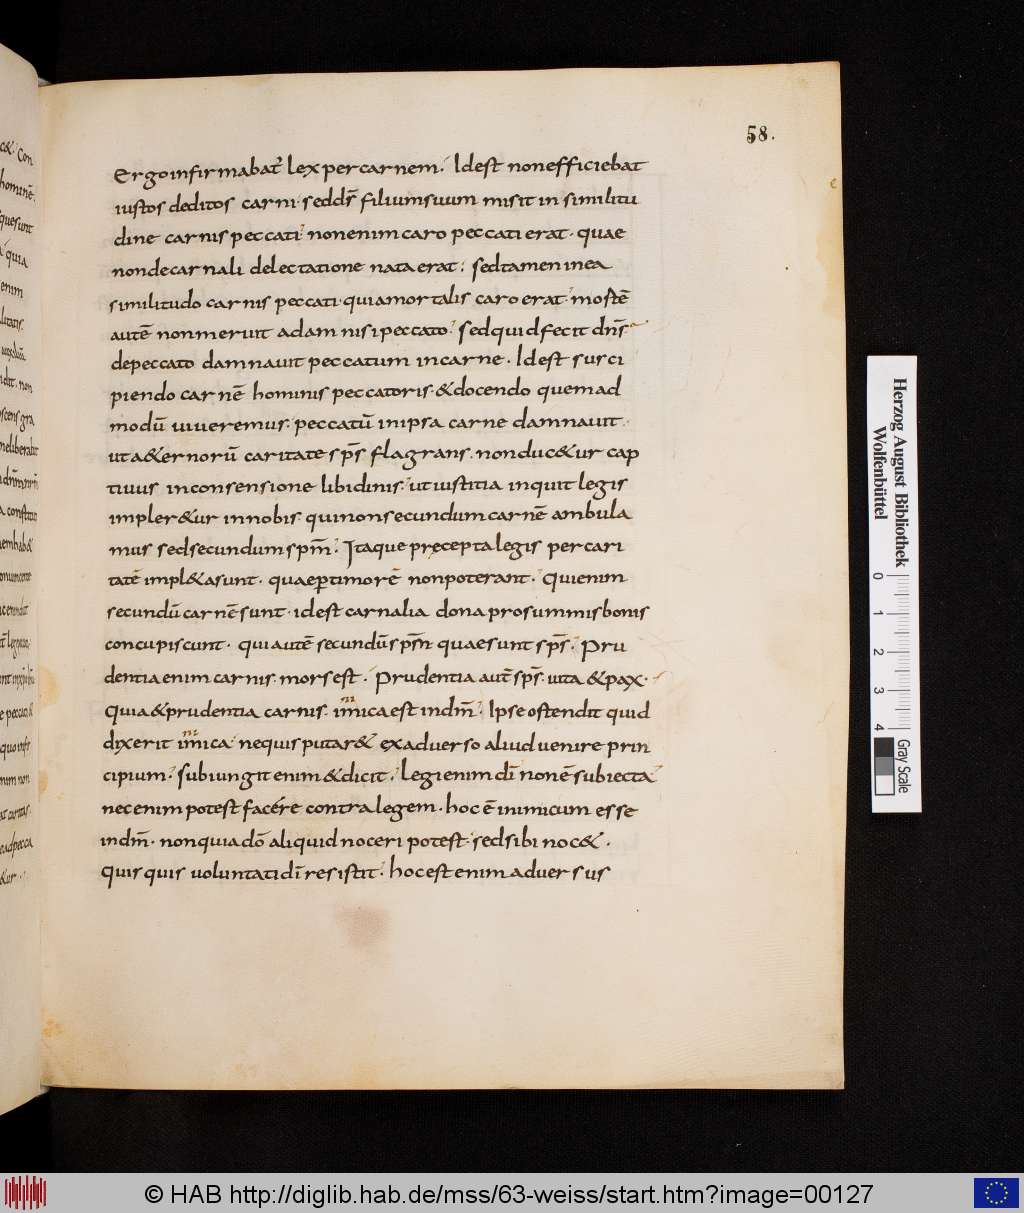 58.
Ergo infirmabat᷑ lex per carnem. Idest non efficiebat
iustos deditos carni. sed ds̄ filium suum misit in similitu
dine carnis peccati. non enim caro peccati erat. quae
non de carnali delectatione nata erat. sed tamen in ea
similitudo carnis peccati. quia mortalis caro erat. mostē
autē non meruit adam nisi peccato. sed quid fecit dn̄s
de peccato damnauit peccatum in carne. Idest susci
piendo carnē hominis peccatoris. & docendo quem ad
modū uiueremus. peccatū in ipsa carne damnauit.
ut a&ernorū caritate sp̄s flagrans. non duc&ur cap
tiuus in consensione libidinis. ut iustitia inquit legis
impler&ur in nobis qui non secundum carnē ambula
mus sed secundum sp̄m. Itaque precepta legis per cari
tatē impl&a sunt. quae ꝑ timorē non poterant. Qui enim
secundū carnē sunt. idest carnalia dona pro summis bonis
concupiscunt. qui autē secundū sp̄m quae sunt sp̄s. Pru
dentia enim carnis. mors est. Prudentia aut̄ sp̄s. uita & pax.
Quia & prudentia carnis. inimica est in dm̄. Ipse ostendit quid
dixerit inimica. ne quis putar& ex aduerso aliud uenire prin
cipium. subiungit enim & dicit. legi enim dī non ē subiecta
nec enim potest facére contra legem. hoc ē inimicum esse
in dm̄. non quia dō aliquid noceri potest. sed sibi noc&.
quisquis uoluntati dī resistit. hoc est enim aduersus
Herzog August Bibliothek
Wolfenbüttel
0 1 2 3 4
Gray Scale
© HAB http://diglib.hab.de/mss/63-weiss/start.htm?image=00127